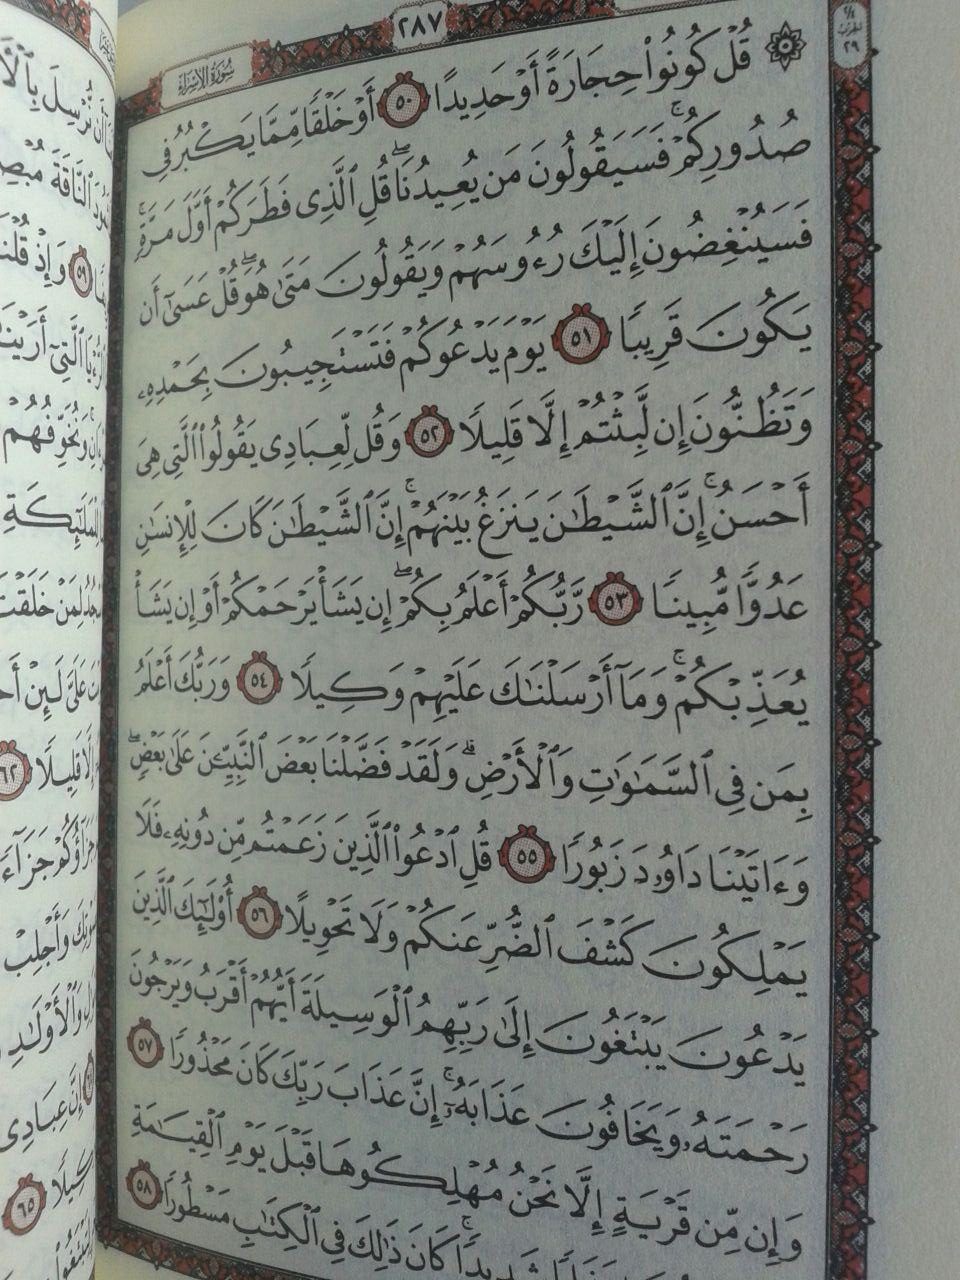 سُورَةُ الإِسْرَاءِ
٢٨٧
الحزب
٢٩
۞ قُلْ كُونُوا۟ حِجَارَةً أَوْ حَدِيدًا ٥٠ أَوْ خَلْقًا مِّمَّا يَكْبُرُ فِى
صُدُورِكُمْ ۚ فَسَيَقُولُونَ مَن يُعِيدُنَا ۖ قُلِ ٱلَّذِى فَطَرَكُمْ أَوَّلَ مَرَّةٍ ۚ
فَسَيُنْغِضُونَ إِلَيْكَ رُءُوسَهُمْ وَيَقُولُونَ مَتَىٰ هُوَ ۖ قُلْ عَسَىٰٓ أَن
يَكُونَ قَرِيبًا ٥١ يَوْمَ يَدْعُوكُمْ فَتَسْتَجِيبُونَ بِحَمْدِهِۦ
وَتَظُنُّونَ إِن لَّبِثْتُمْ إِلَّا قَلِيلًا ٥٢ وَقُل لِّعِبَادِى يَقُولُوا۟ ٱلَّتِى هِىَ
أَحْسَنُ ۚ إِنَّ ٱلشَّيْطَٰنَ يَنزَغُ بَيْنَهُمْ ۚ إِنَّ ٱلشَّيْطَٰنَ كَانَ لِلْإِنسَٰنِ
عَدُوًّا مُّبِينًا ٥٣ رَّبُّكُمْ أَعْلَمُ بِكُمْ ۖ إِن يَشَأْ يَرْحَمْكُمْ أَوْ إِن يَشَأْ
يُعَذِّبْكُمْ ۚ وَمَآ أَرْسَلْنَٰكَ عَلَيْهِمْ وَكِيلًا ٥٤ وَرَبُّكَ أَعْلَمُ
بِمَن فِى ٱلسَّمَٰوَٰتِ وَٱلْأَرْضِ ۗ وَلَقَدْ فَضَّلْنَا بَعْضَ ٱلنَّبِيِّـۧنَ عَلَىٰ بَعْضٍ ۖ
وَءَاتَيْنَا دَاوُۥدَ زَبُورًا ٥٥ قُلِ ٱدْعُوا۟ ٱلَّذِينَ زَعَمْتُم مِّن دُونِهِۦ فَلَا
يَمْلِكُونَ كَشْفَ ٱلضُّرِّ عَنكُمْ وَلَا تَحْوِيلًا ٥٦ أُو۟لَٰٓئِكَ ٱلَّذِينَ
يَدْعُونَ يَبْتَغُونَ إِلَىٰ رَبِّهِمُ ٱلْوَسِيلَةَ أَيُّهُمْ أَقْرَبُ وَيَرْجُونَ
رَحْمَتَهُۥ وَيَخَافُونَ عَذَابَهُۥٓ ۚ إِنَّ عَذَابَ رَبِّكَ كَانَ مَحْذُورًا ٥٧
وَإِن مِّن قَرْيَةٍ إِلَّا نَحْنُ مُهْلِكُوهَا قَبْلَ يَوْمِ ٱلْقِيَٰمَةِ
شَدِيدًا ۚ كَانَ ذَٰلِكَ فِى ٱلْكِتَٰبِ مَسْطُورًا ٥٨
أَن نُّرْسِلَ
ٱلنَّاقَةَ
٥٩ وَإِذْ قُلْنَا
ٱلَّتِىٓ
وَنُخَوِّفُهُمْ
لِلْمَلَٰٓئِكَةِ
لِمَنْ خَلَقْتَ
عَلَىَّ لَئِنْ
إِلَّا قَلِيلًا ٦٢
جَزَآؤُكُمْ جَزَآءً
وَأَجْلِبْ
وَٱلْأَوْلَٰدِ
إِنَّ عِبَادِى
٦٥